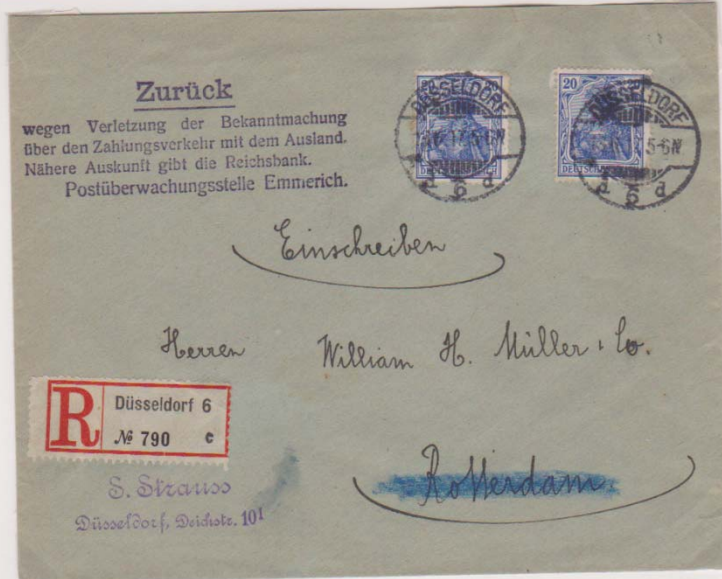 Zurück
wegen Verletzung der Bekanntmachung
über den Zahlungsverkehr mit dem Ausland.
Nähere Auskunft gibt die Reichsbank.
Postüberwachungsstelle Emmerich.
DÜSSELDORF
5-6N
6 d
20
DÜSSELDORF
5-6N
6 d
Einschreiben
Herren William H. Müller & Co.
R Düsseldorf 6
№ 790 c
S. Strauss
Düsseldorf, Deichstr. 101
Rotterdam